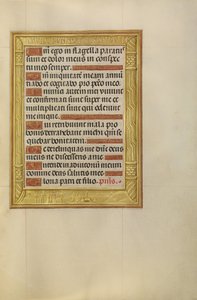 Qm̄ ego in flagella paratus
sum et dolor meus in conspe
ctu meo semper.
Qm̄ iniquitatē meam annū
tiabo et cogitabo pro pctō meo.
Inimici autem mei viuunt
et confirmati sunt super me et
multiplicati sunt qui oderunt
me inique.
Qui retribuunt mala pro
bonis detrahebant michi qm̄ se
quebar bonitatem.
Ne derelinquas me dn̄e deus
meus ne discesseris a me.
Intende in adiutoriū meum
domine deus salutis mee.
Gloria patri et filio. psls̄